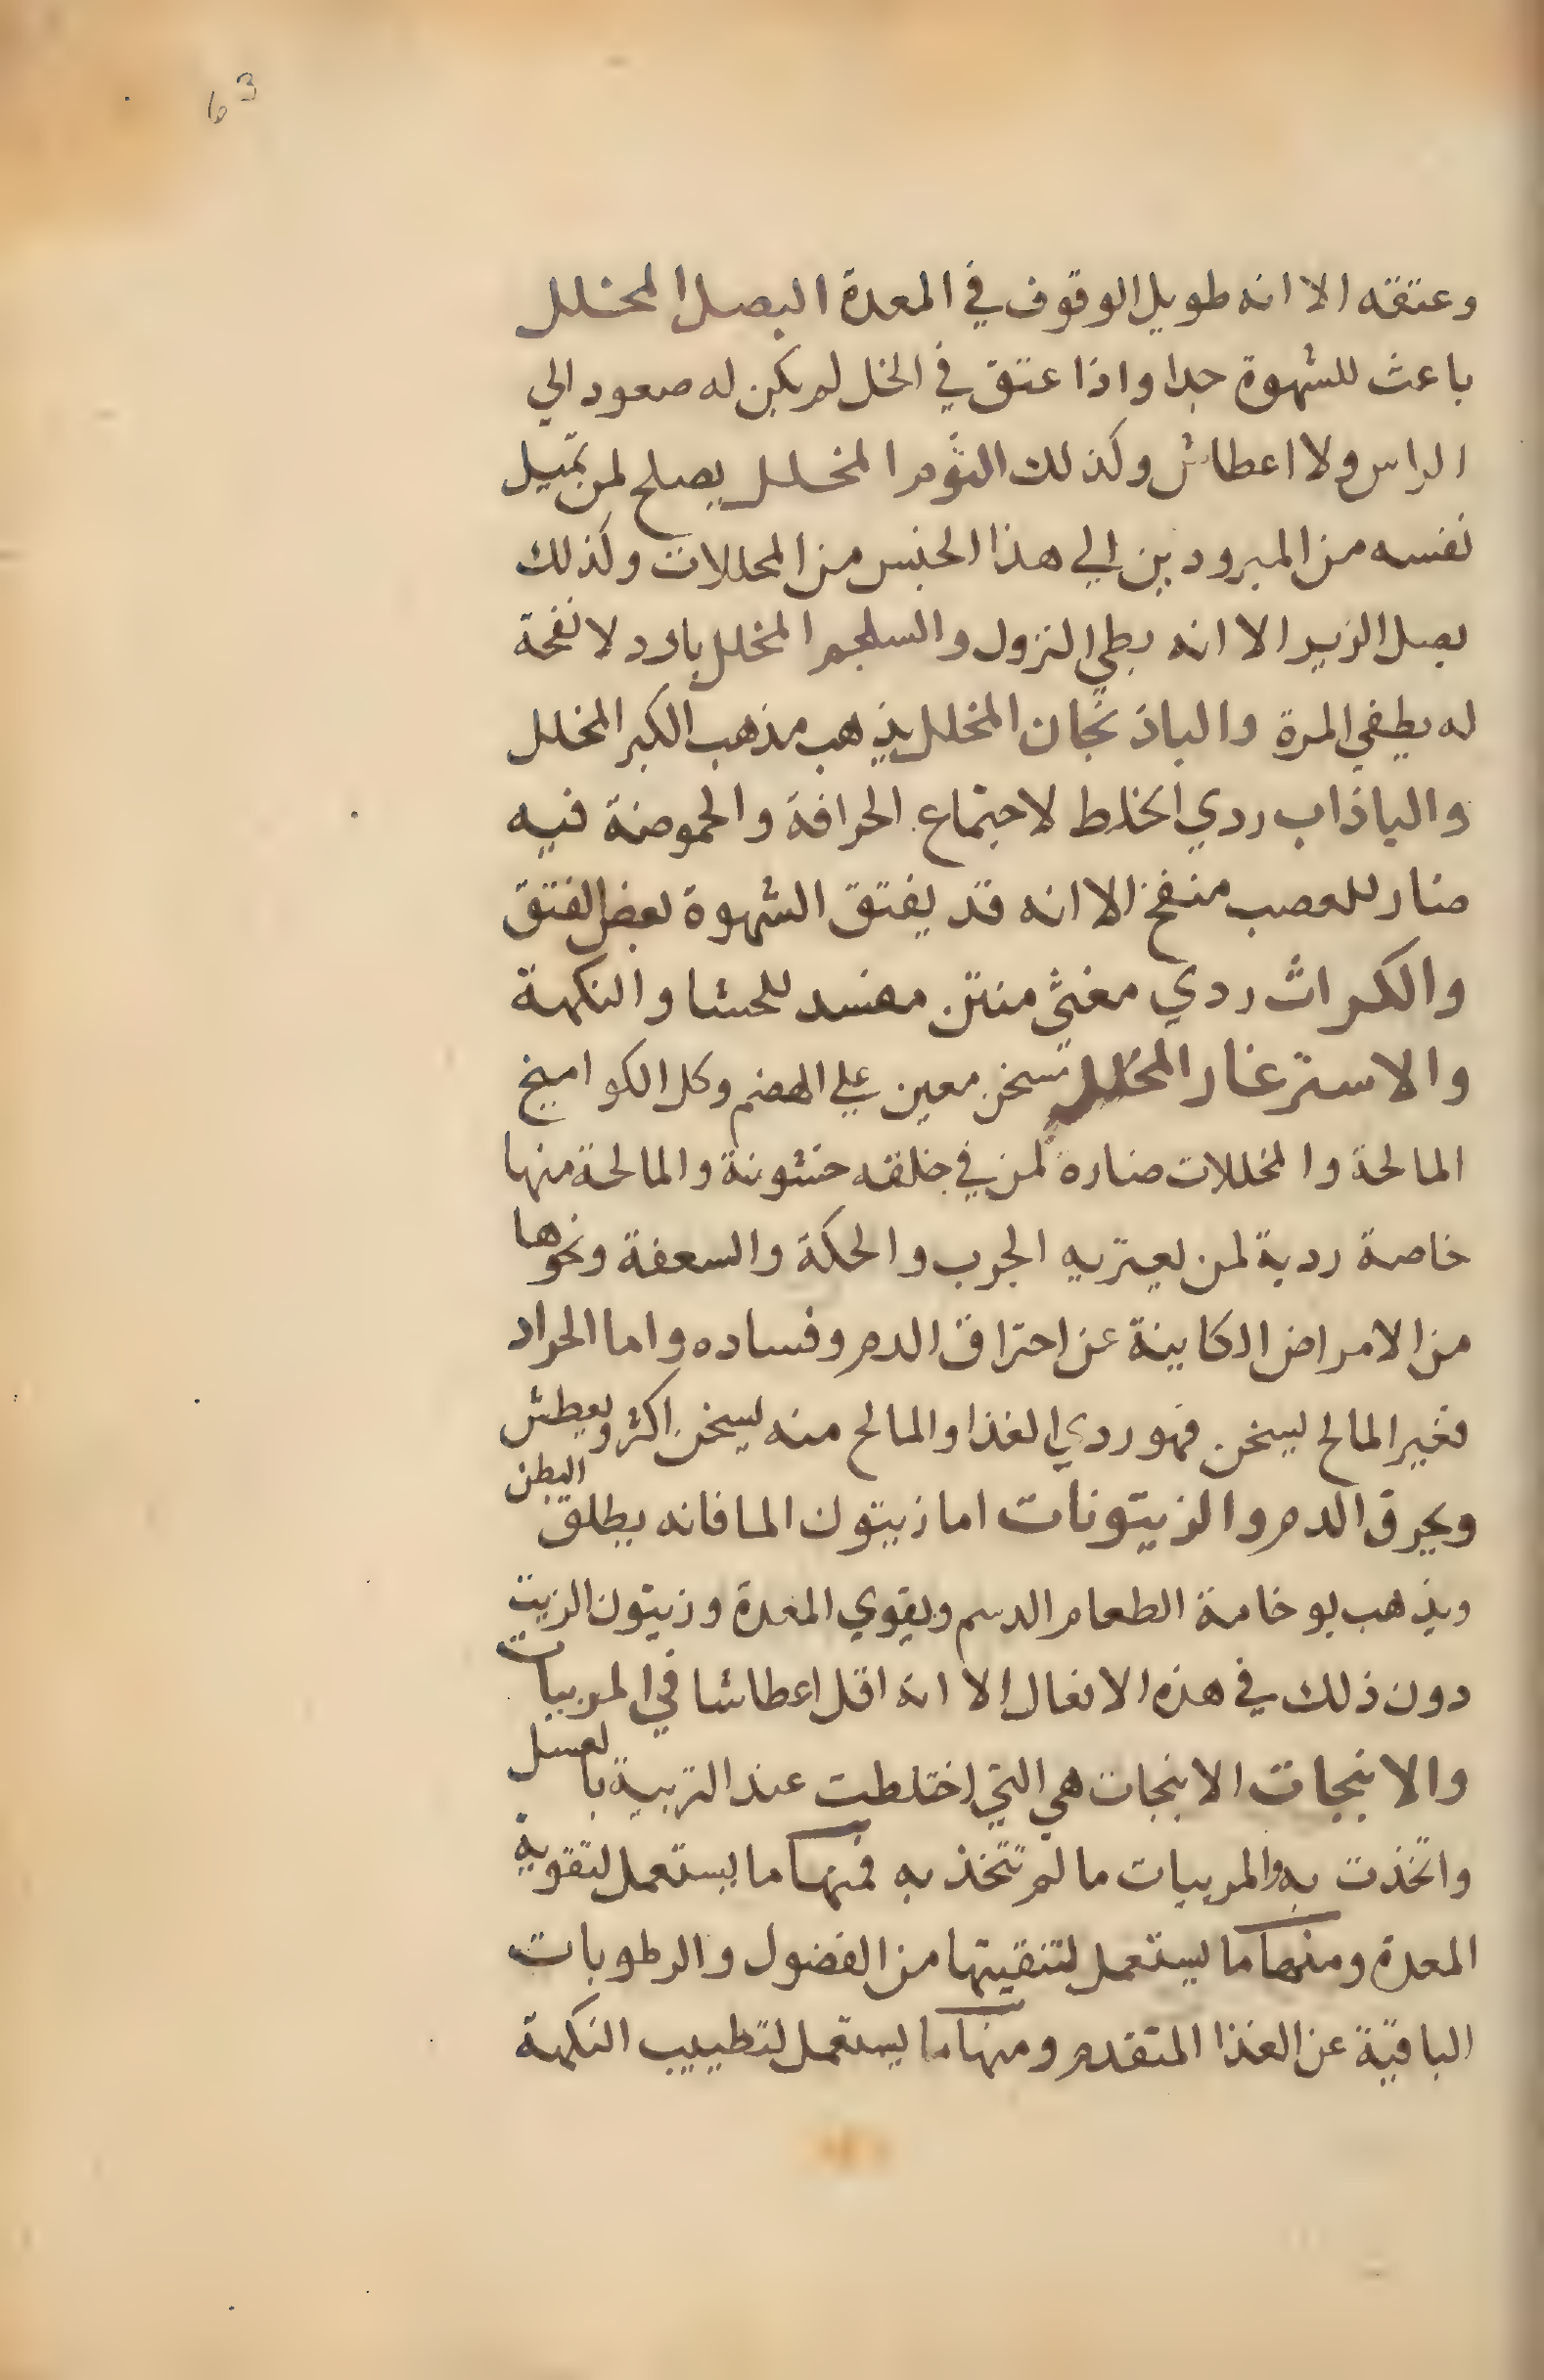 63
وعتقه الا انه طويل الوقوف في المعدة البصل المخلل
باعث للشهوة جدا واذا عتق في الخل لم يكن له صعود الي
الراس ولا اعطاش وكذلك الثوم المخلل يصلح لمن تميل
نفسه من المبرودين الي هذا الجنس من المحللات وكذلك
بصل الزير الا انه بطي النزول والسلجم المخلل بارد لا نفخة
له يطفي المرة والباذنجان المخلل يذهب مذهب الكبر المخلل
والباذاب ردي الخلط لاجتماع الحرافة والحموضة فيه
ضار للعصب منفخ الا انه قد يفتق الشهوة بعض الفتق
والكراث ردي مغثي منتن مفسد للجشا والنكهة
والاسترغار المخلل تسخن معين علي الهضم وكل الكواميخ
المالحة والمخللات ضارة لمن في حلقه خشونة والمالحة منها
خاصة ردية لمن يعتريه الجرب والحكة والسعفة ونحوها
من الامراض الكاينة عن احتراق الدم وفساده واما الجراد
فغير المالح يسخن فهو ردي الغذا والمالح منه يسخن اكثر ويعطش
ويحرق الدم والزيتونات اما زيتون الما فانه يطلق البطن
ويذهب بوخامة الطعام الدسم ويقوي المعدة وزيتون الزيت
دون ذلك في هذه الافعال الا انه اقل اعطاشا في المربيات
والانبجات الانبجات هي التي اختلطت عند التربية بالعسل
واتخذت به والمربيات ما لم تتخذ به فمنها ما يستعمل لتقوية
المعدة ومنها ما يستعمل لتنقيتها من الفضول والرطوبات
الباقية عن الغذا المتقدم ومنها ما يستعمل لتطييب النكهة